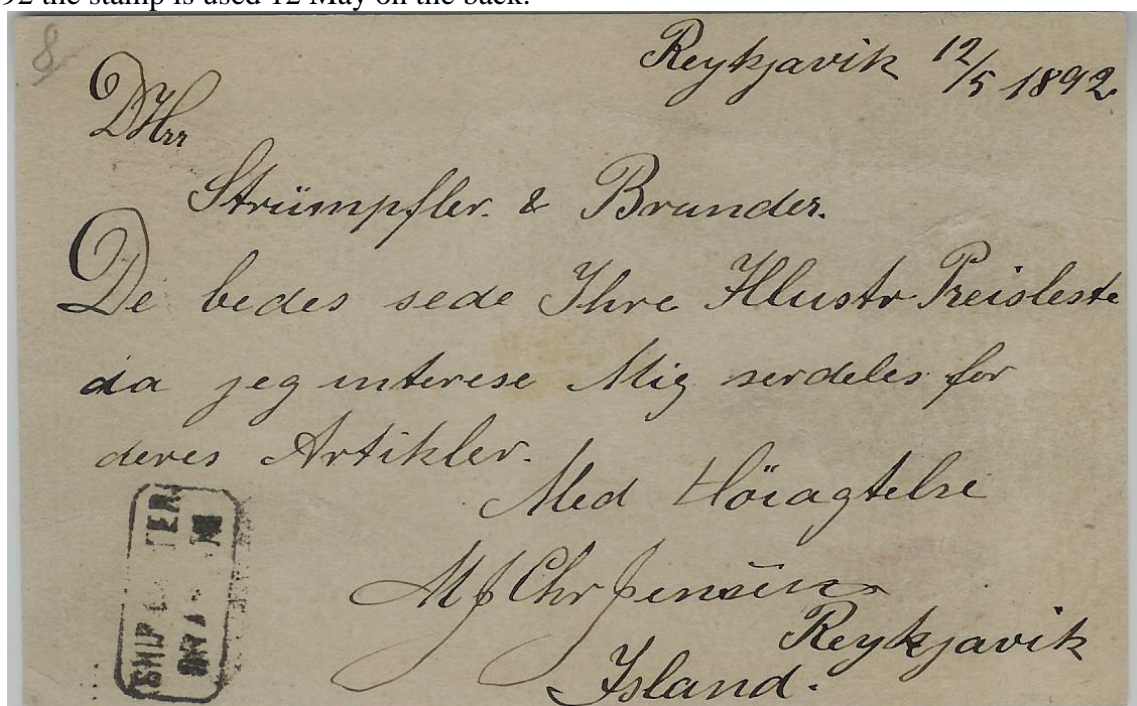 92 the stamp is used 12 May on the back.
8
Reykjavik 12/5 1892.
DHrr
Strümpfler & Brander.
De bedes sede Ihre Illustr Preisleste
da jeg interese Mig serdeles for
deres Artikler.
Med Höiagtelse
MJ Chr Jensen
Reykjavik
Island.
SHIP